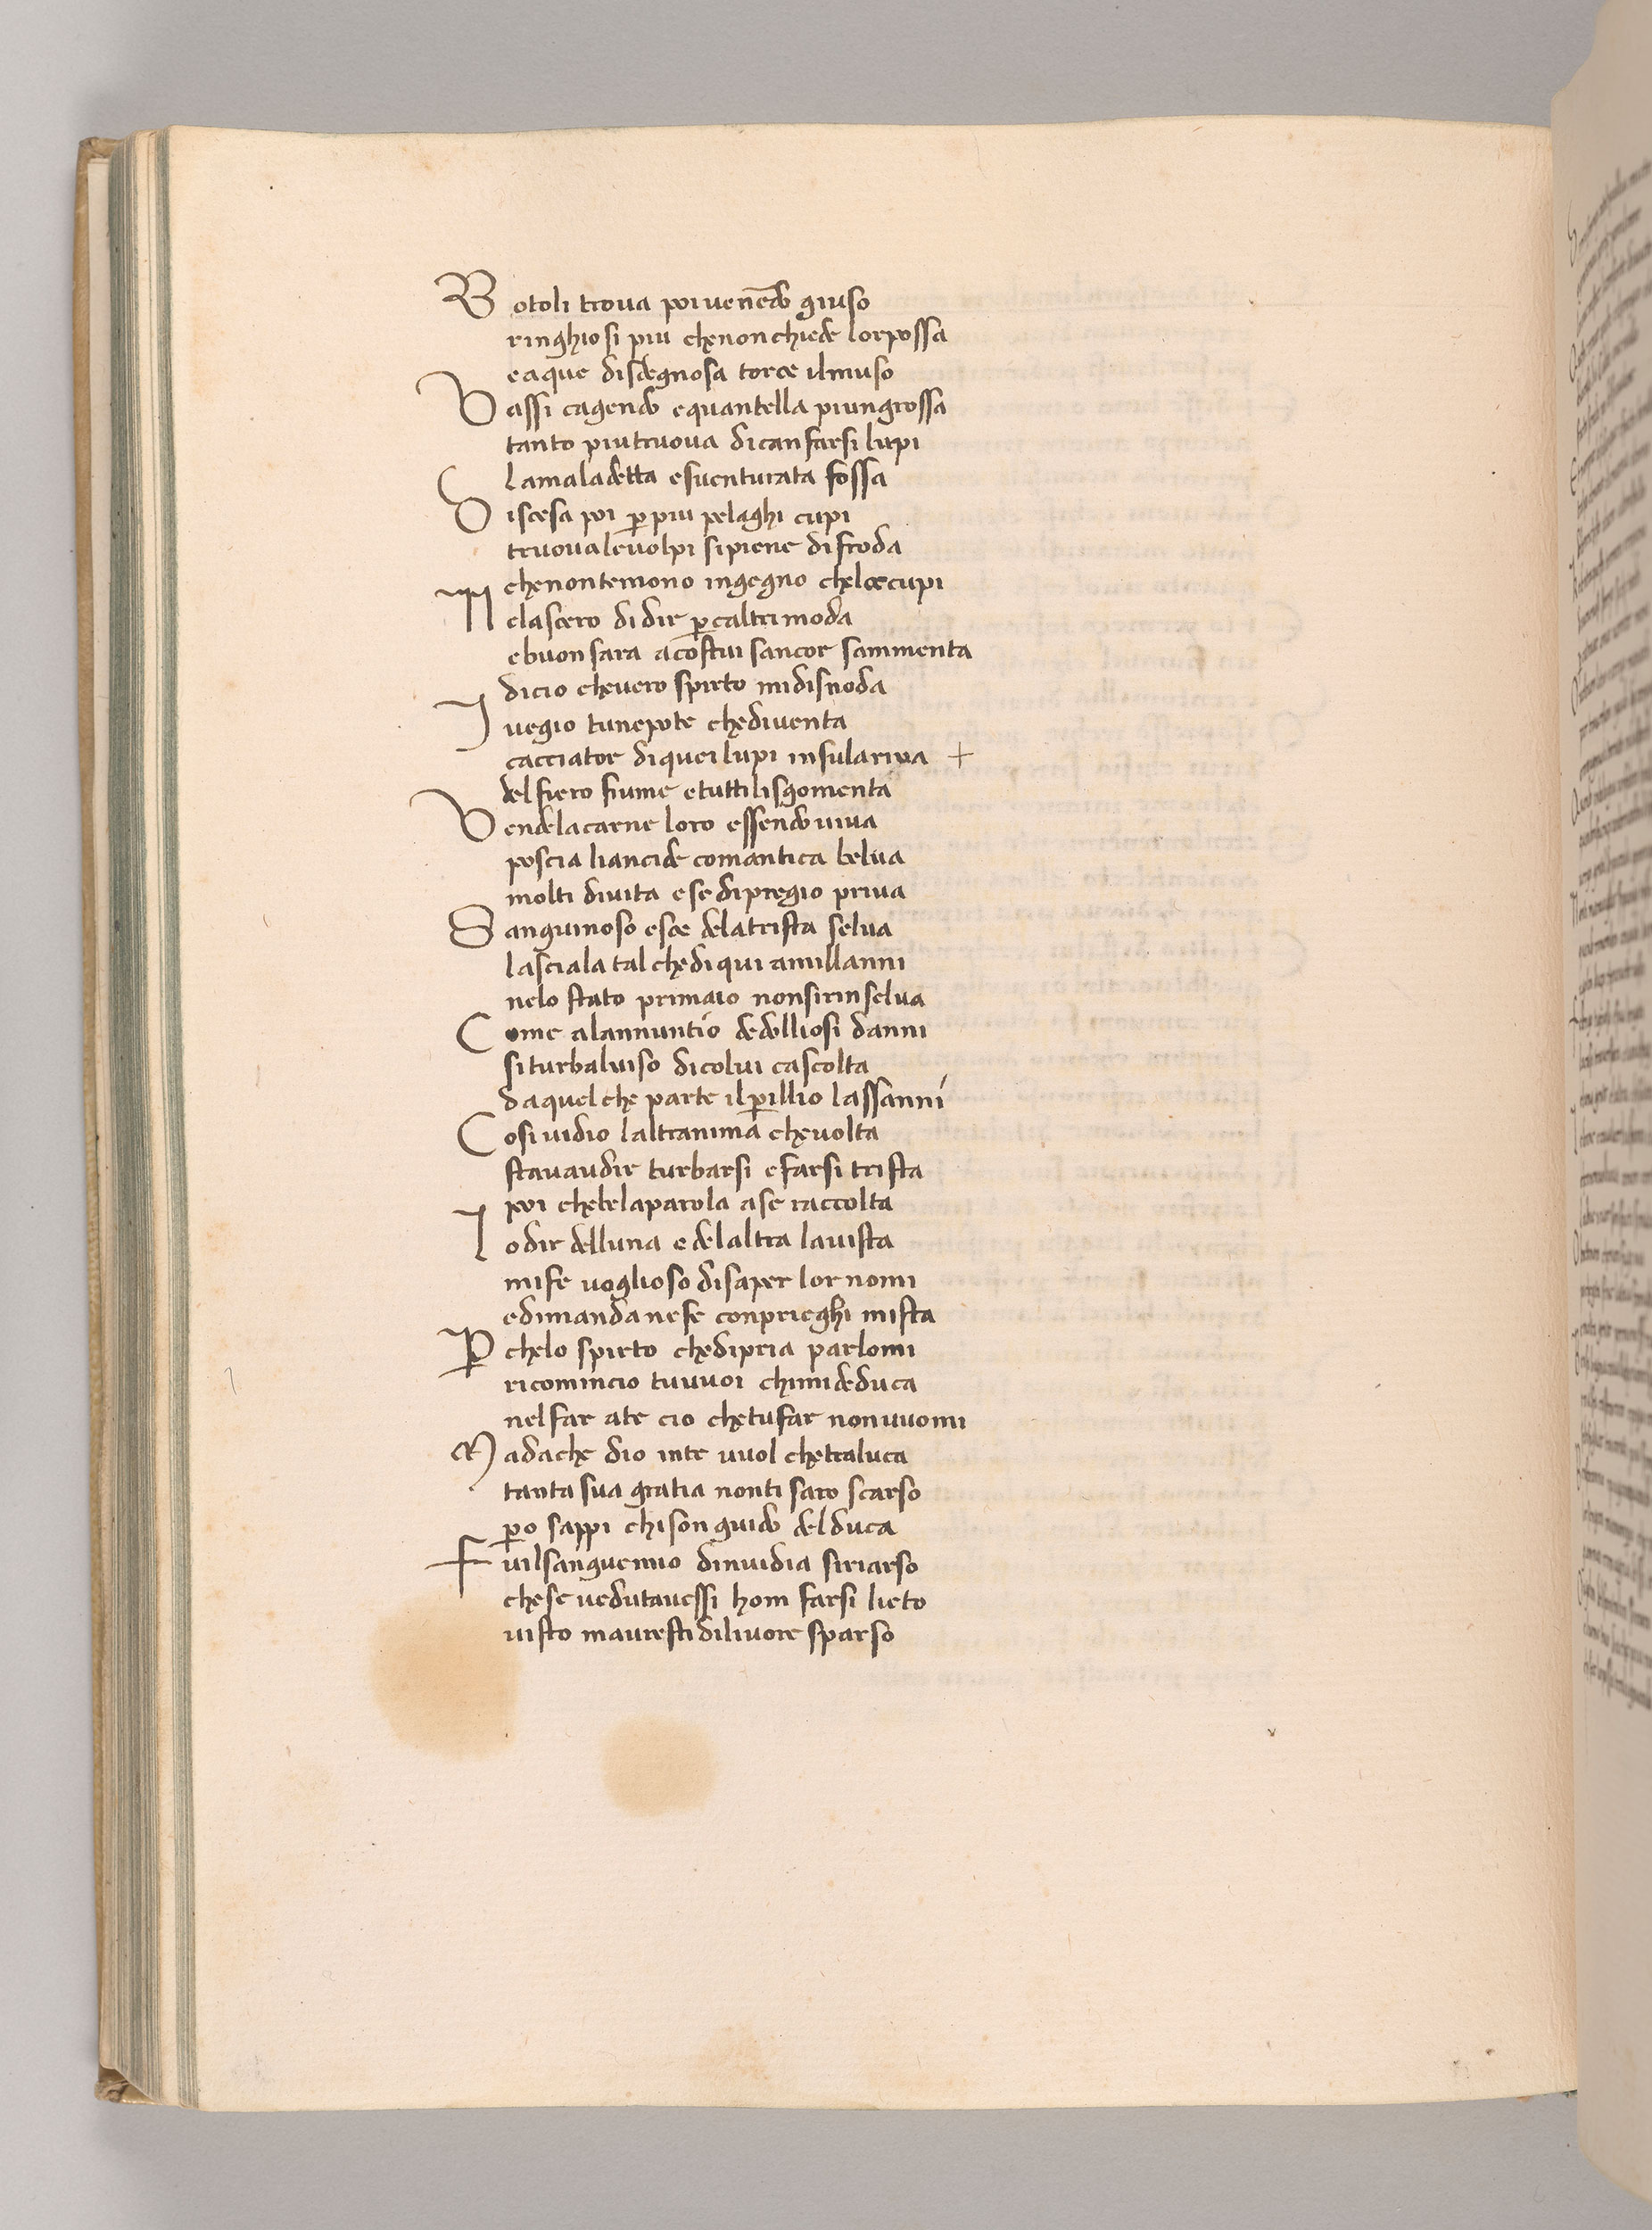 Botoli trova poi venēdo giuso
ringhiosi piu che non chiede lor possa
e a que disdegnosa torce il muso
Vassi cagendo e quantella piungrossa
tanto piu truova di can farsi lupi
la maladetta e sventurata fossa
Discesa poi ꝑ piu pelaghi cupi
truova le volpi si piene di froda
che non temono ingegno che loccupi
Ne lascero di dir ꝑcaltri moda
e buon sara a costui sancor sammenta
di cio che vero spirto mi disnoda
I vegio tu nepote che diventa
cacciator di quei lupi in su la riva +
del fiero fiume e tutti li sgomenta
Vende la carne loro essendo viva
poscia li ancide com antica belva
molti di vita e se di pregio priva
Sanguinoso esce de la trista selva
lasciala tal che di qui a mill anni
ne lo stato primaio non si rinselva
Come a l annuntio de dolliosi danni
si turba l viso di colui cascolta
da qual che parte il ꝑillio l assanni
Cosi vidio l altr anima che volta
stava udir turbarsi e farsi trista
poi chebe la parola a se raccolta
Lo dir dell una e de l altra la vista
mi fe voglioso di saper lor nomi
e dimanda ne fe con prieghi mista
Ꝑche lo spirto che di pria parlomi
ricomincio tu vuoi chi mi deduca
nel far a te cio che tu far non vuomi
Ma da che dio in te vuol che traluca
tanta sua gratia non ti saro scarso
ꝑo sappi chi son guido del duca
Fu il sangue mio dinvidia si riarso
che se veduto avessi hom farsi lieto
visto mavresti di livore sparso